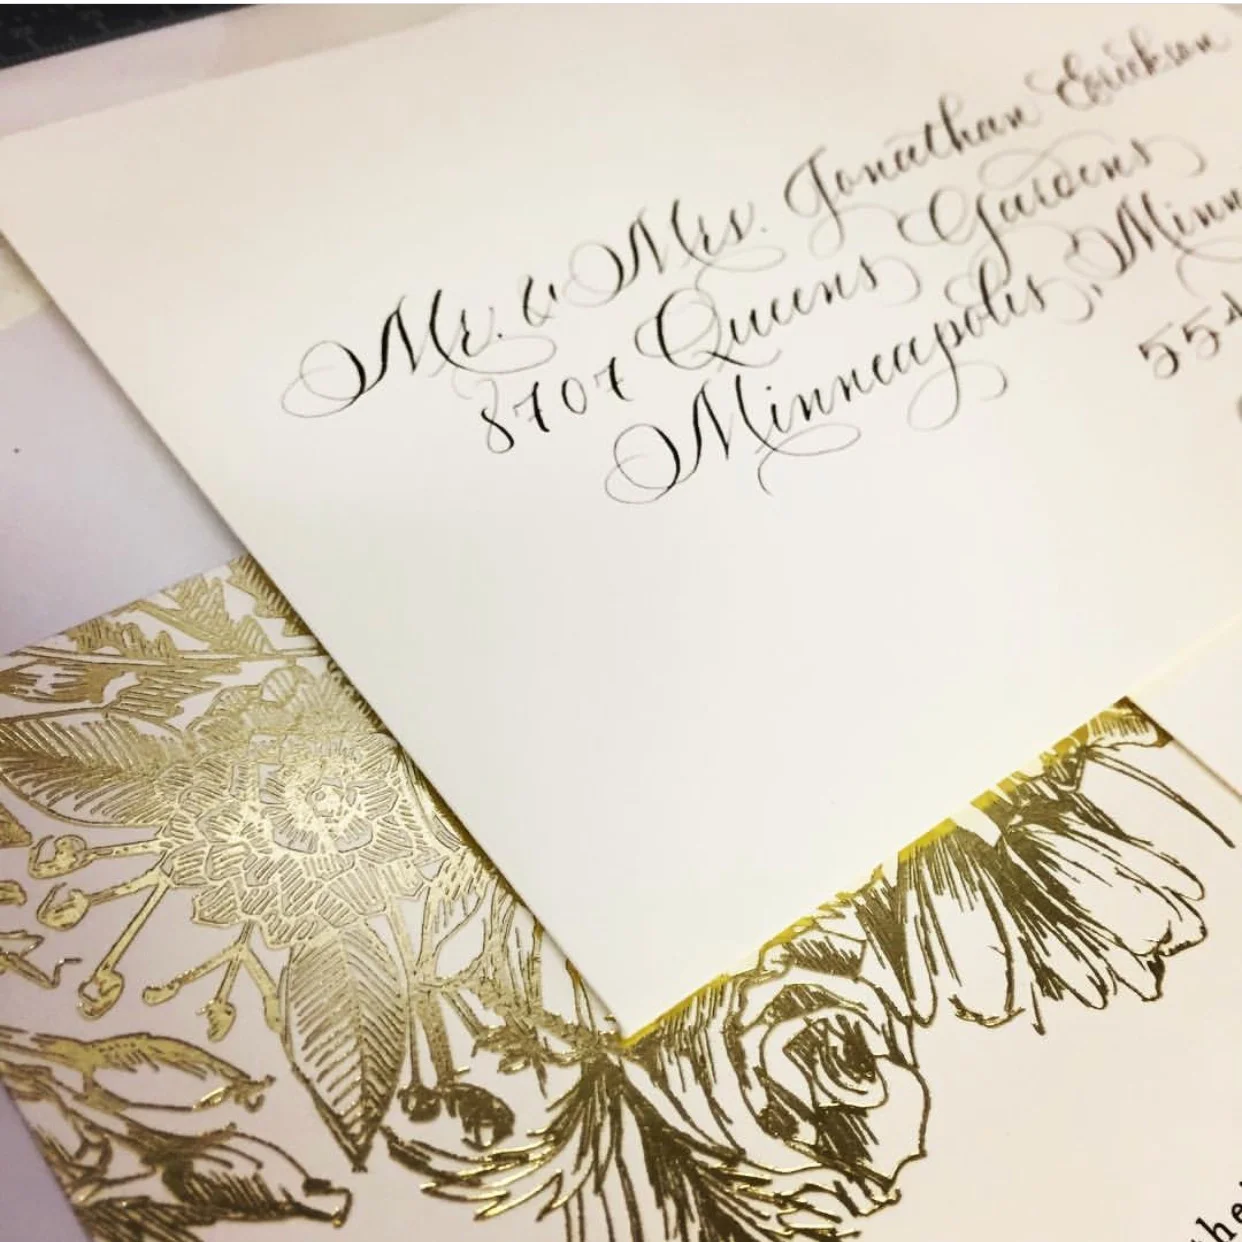 Mr. & Mrs. Jonathan Erickson
8707 Queens Gardens
Minneapolis, Minn
554
the